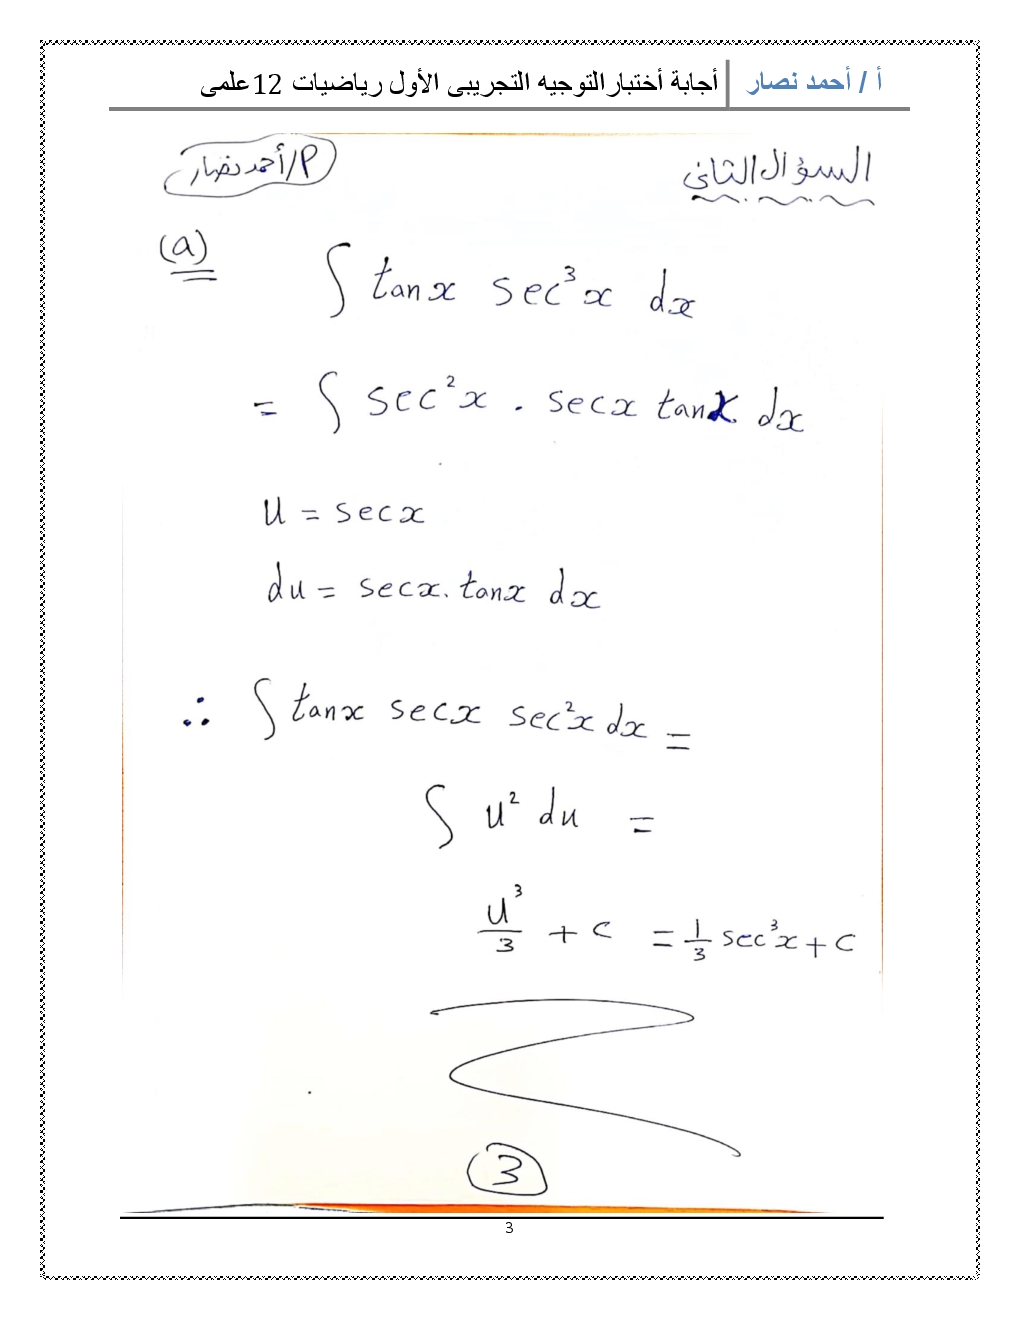 أ / أحمد نصار أجابة أختبارالتوجيه التجريبى الأول رياضيات 12علمى
السؤال الثاني
أ/أحمد نصار
(a)
∫ tanx sec³x dx
= ∫ sec²x . secx tanx dx
u = secx
du = secx.tanx dx
∴ ∫ tanx secx sec²x dx =
∫ u² du =
u³/3 + c = 1/3 sec³x + c
3
3